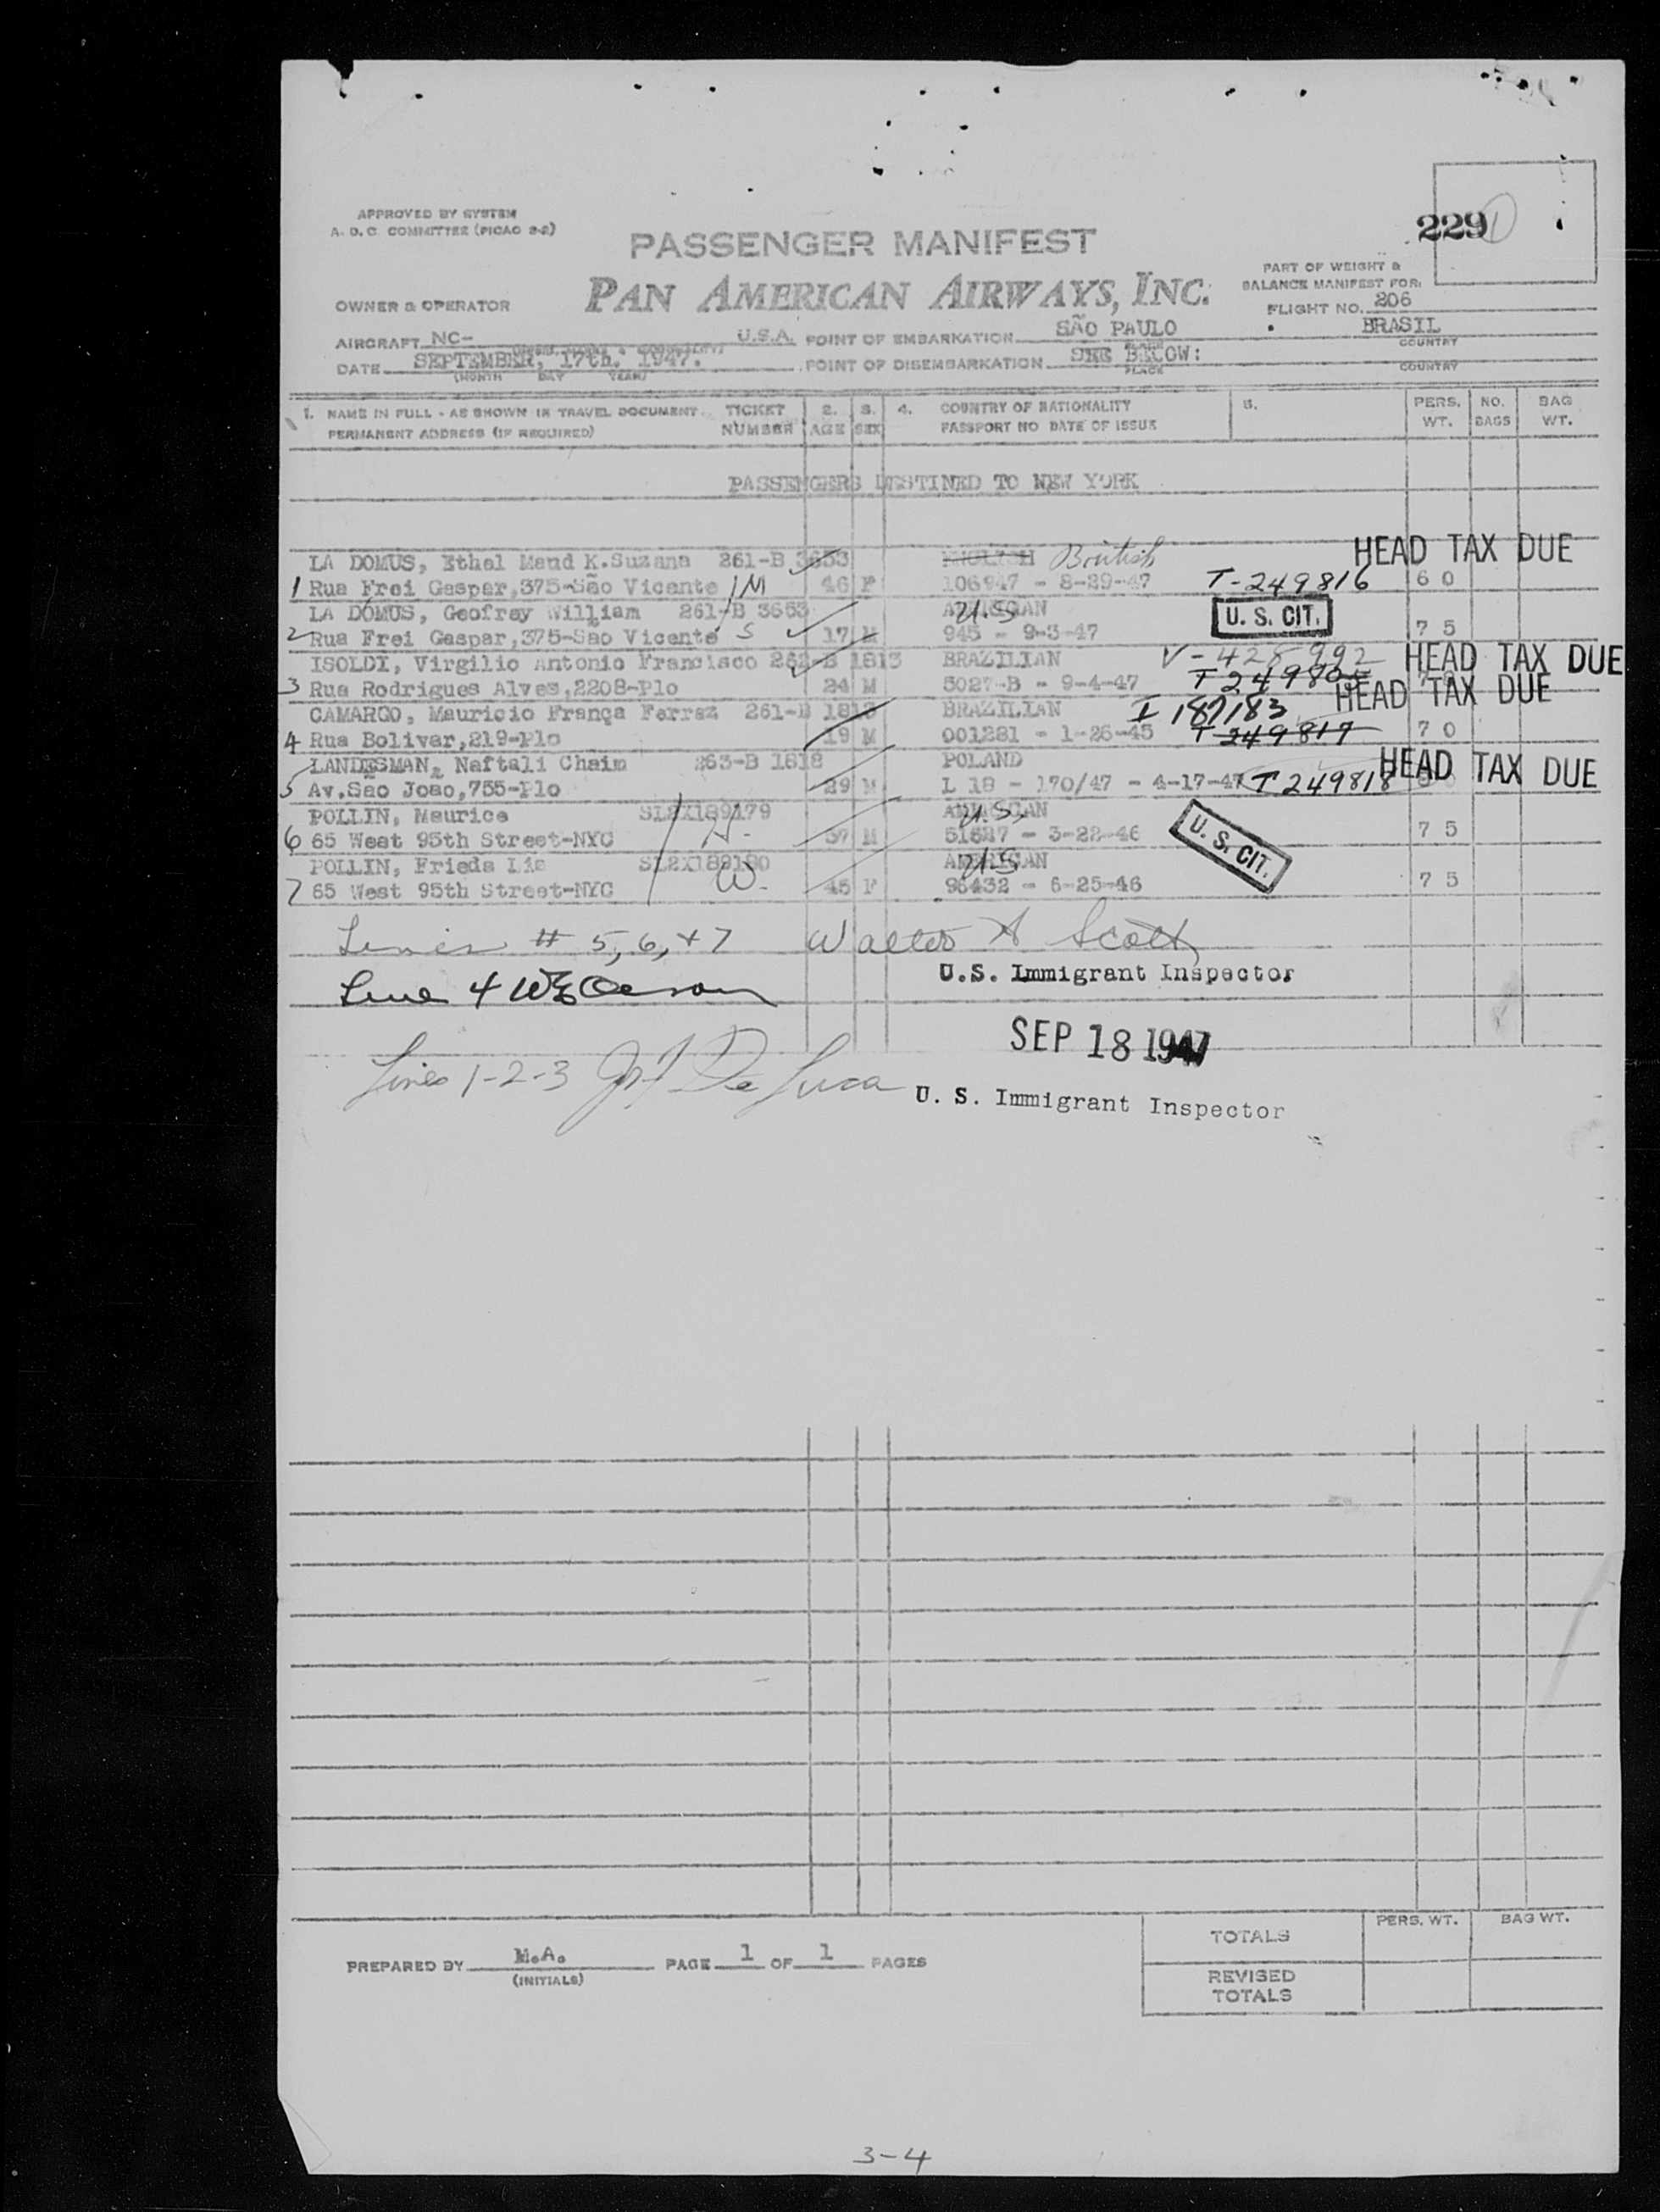 APPROVED BY SYSTEM
A. D. C. COMMITTEE (PICAO 2-2)
229
PASSENGER MANIFEST
PAN AMERICAN AIRWAYS, INC.
PART OF WEIGHT &
BALANCE MANIFEST FOR:
OWNER & OPERATOR
FLIGHT NO. 206
AIRCRAFT NC- U.S.A. POINT OF EMBARKATION SÃO PAULO BRASIL
COUNTRY
DATE SEPTEMBER, 17th. 1947. POINT OF DISEMBARKATION SEE BELOW:
(MONTH DAY YEAR) PLACE COUNTRY
1. NAME IN FULL - AS SHOWN IN TRAVEL DOCUMENT TICKET 2. 3. 4. COUNTRY OF NATIONALITY 5. PERS. NO. BAG
PERMANENT ADDRESS (IF REQUIRED) NUMBER AGE SEX PASSPORT NO DATE OF ISSUE WT. BAGS WT.
PASSENGERS DESTINED TO NEW YORK
LA DOMUS, Ethel Maud K.Suzana 261-B 3653 ENGLISH British HEAD TAX DUE
1 Rua Frei Gaspar,375-São Vicente M 46 F 106947 - 8-29-47 T-249816 60
LA DOMUS, Geofrey William 261-B 3653 U.S. U. S. CIT.
2 Rua Frei Gaspar,375-Sao Vicente S 17 M 945 - 9-3-47 75
ISOLDI, Virgilio Antonio Francisco 262-B 1813 BRAZILIAN HEAD TAX DUE
3 Rua Rodrigues Alves,2208-Plo 24 M 5027-B - 9-4-47
CAMARGO, Mauricio França Ferraz 261-B 1813 BRAZILIAN I 187183 HEAD TAX DUE
4 Rua Bolivar,219-Plo 19 M 001281 - 1-26-45 T-249817 70
LANDESMAN, Naftali Chaim 263-B 1818 POLAND HEAD TAX DUE
5 Av.São Joao,755-Plo 29 M L 18 - 170/47 - 4-17-47 T 249818
POLLIN, Maurice SL2X189179 U.S.
6 65 West 95th Street-NYC H. 57 M 51627 - 3-22-46 U. S. CIT. 75
POLLIN, Frieda SL2X189180 AMERICAN U.S
7 65 West 95th Street-NYC W. 45 F 96432 - 6-25-46 75
Lines # 5, 6, + 7 Walter A Scott
U.S. Immigrant Inspector
Line 4
SEP 18 1947
Lines 1-2-3 De Luca
U. S. Immigrant Inspector
PREPARED BY M.A. PAGE 1 OF 1 PAGES
(INITIALS)
PERS. WT. BAG WT.
TOTALS
REVISED
TOTALS
3-4